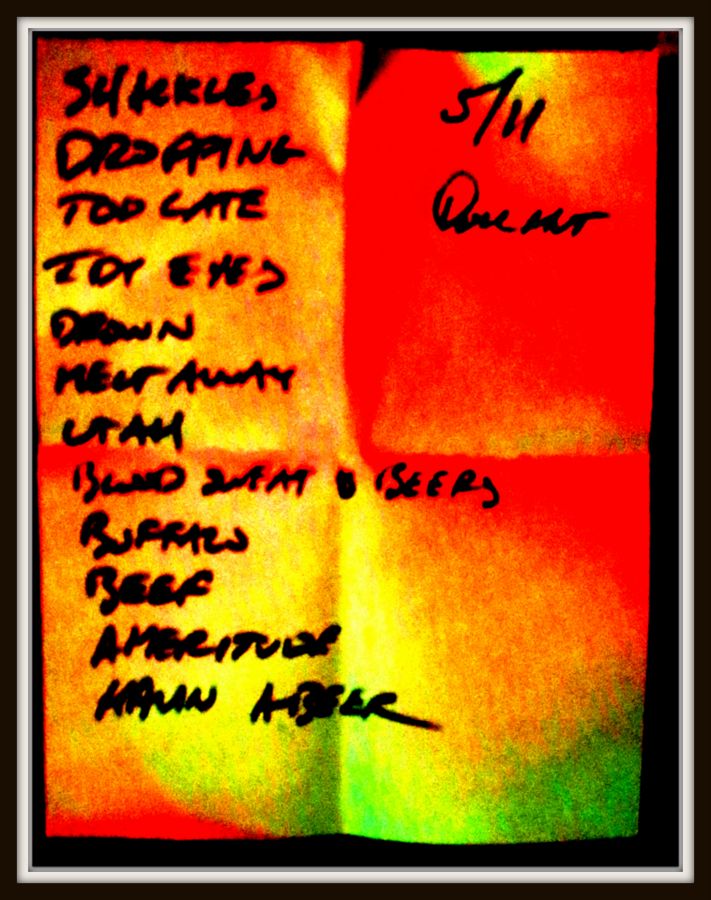 SHACKLES
DROPPING
TOO LATE
ICY EYES
DROWN
MELT AWAY
UTAH
BLOOD SWEAT & BEERS
BUFFALO
BEEF
AMERITUDE
HAVIN A BEER
5/11